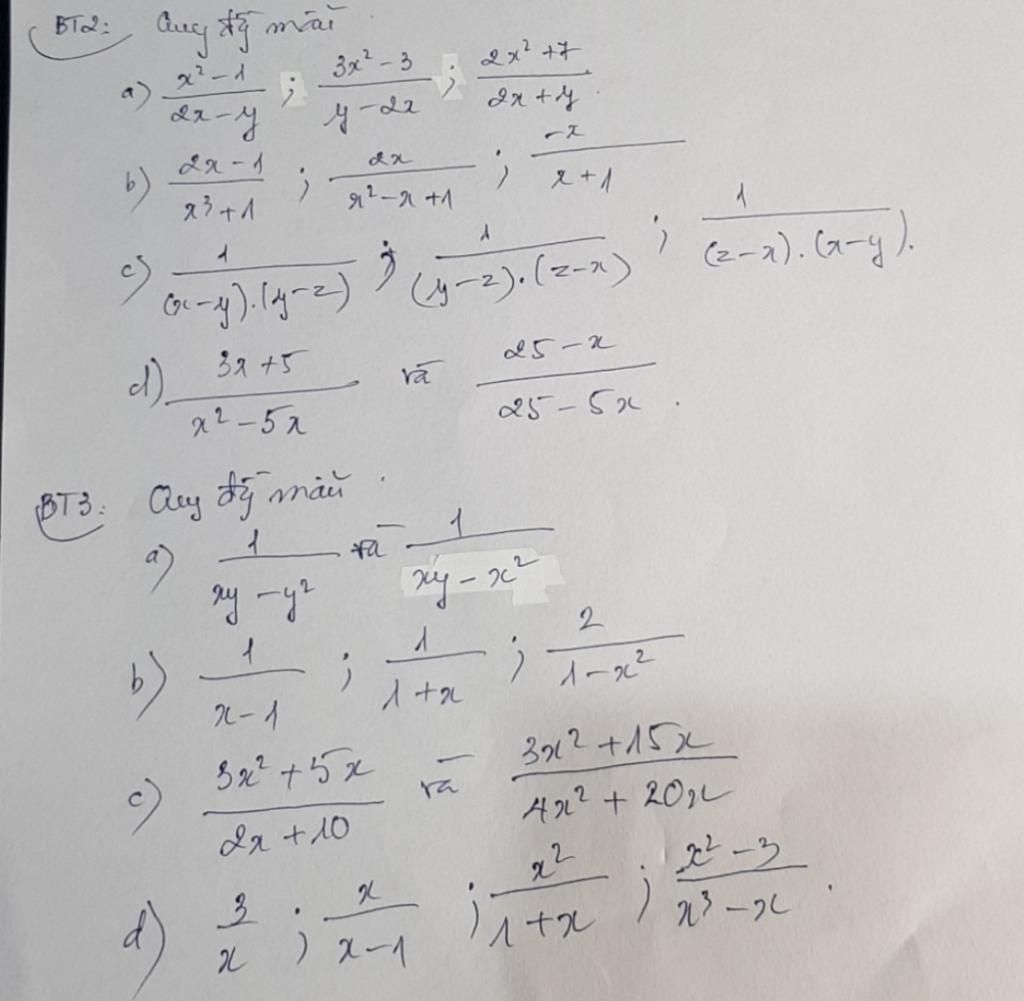 BT2: Quy đg mẫu
a) \frac{x² - 1}{2x - y} ; \frac{3x² - 3}{y - 2x} ; \frac{2x² + 7}{2x + y}.
b) \frac{2x - 1}{x³ + 1} ; \frac{2x}{x² - x + 1} ; \frac{-x}{x + 1}
c) \frac{1}{(x - y).(y - z)} ; \frac{1}{(y - z).(z - x)} ; \frac{1}{(z - x).(x - y)}.
d) \frac{3x + 5}{x² - 5x} và \frac{25 - x}{25 - 5x}.
BT3: Quy đg mẫu.
a) \frac{1}{xy - y²} và \frac{1}{xy - x²}
b) \frac{1}{x - 1} ; \frac{1}{1 + x} ; \frac{2}{1 - x²}
c) \frac{3x² + 5x}{2x + 10} và \frac{3x² + 15x}{4x² + 20x}
d) \frac{3}{x} ; \frac{x}{x - 1} ; \frac{x²}{1 + x} ; \frac{x² - 3}{x³ - x}.